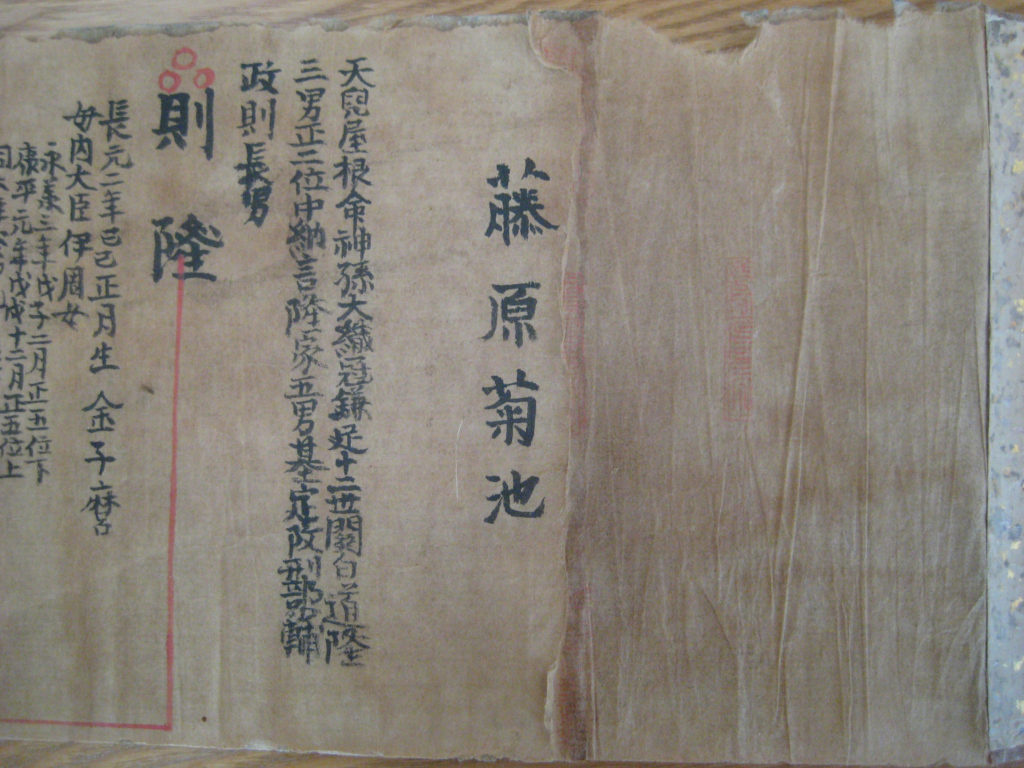 藤原菊池
天兒屋根命神孫大織冠鎌足十二世關白道隆
三男正二位中納言隆家五男基定改刑部輔
政則長男
則隆
長元二年己巳正月生 金子麿
母内大臣伊周女
永承三年戊子二月正五位下
康平元年戊戌十二月正五位上